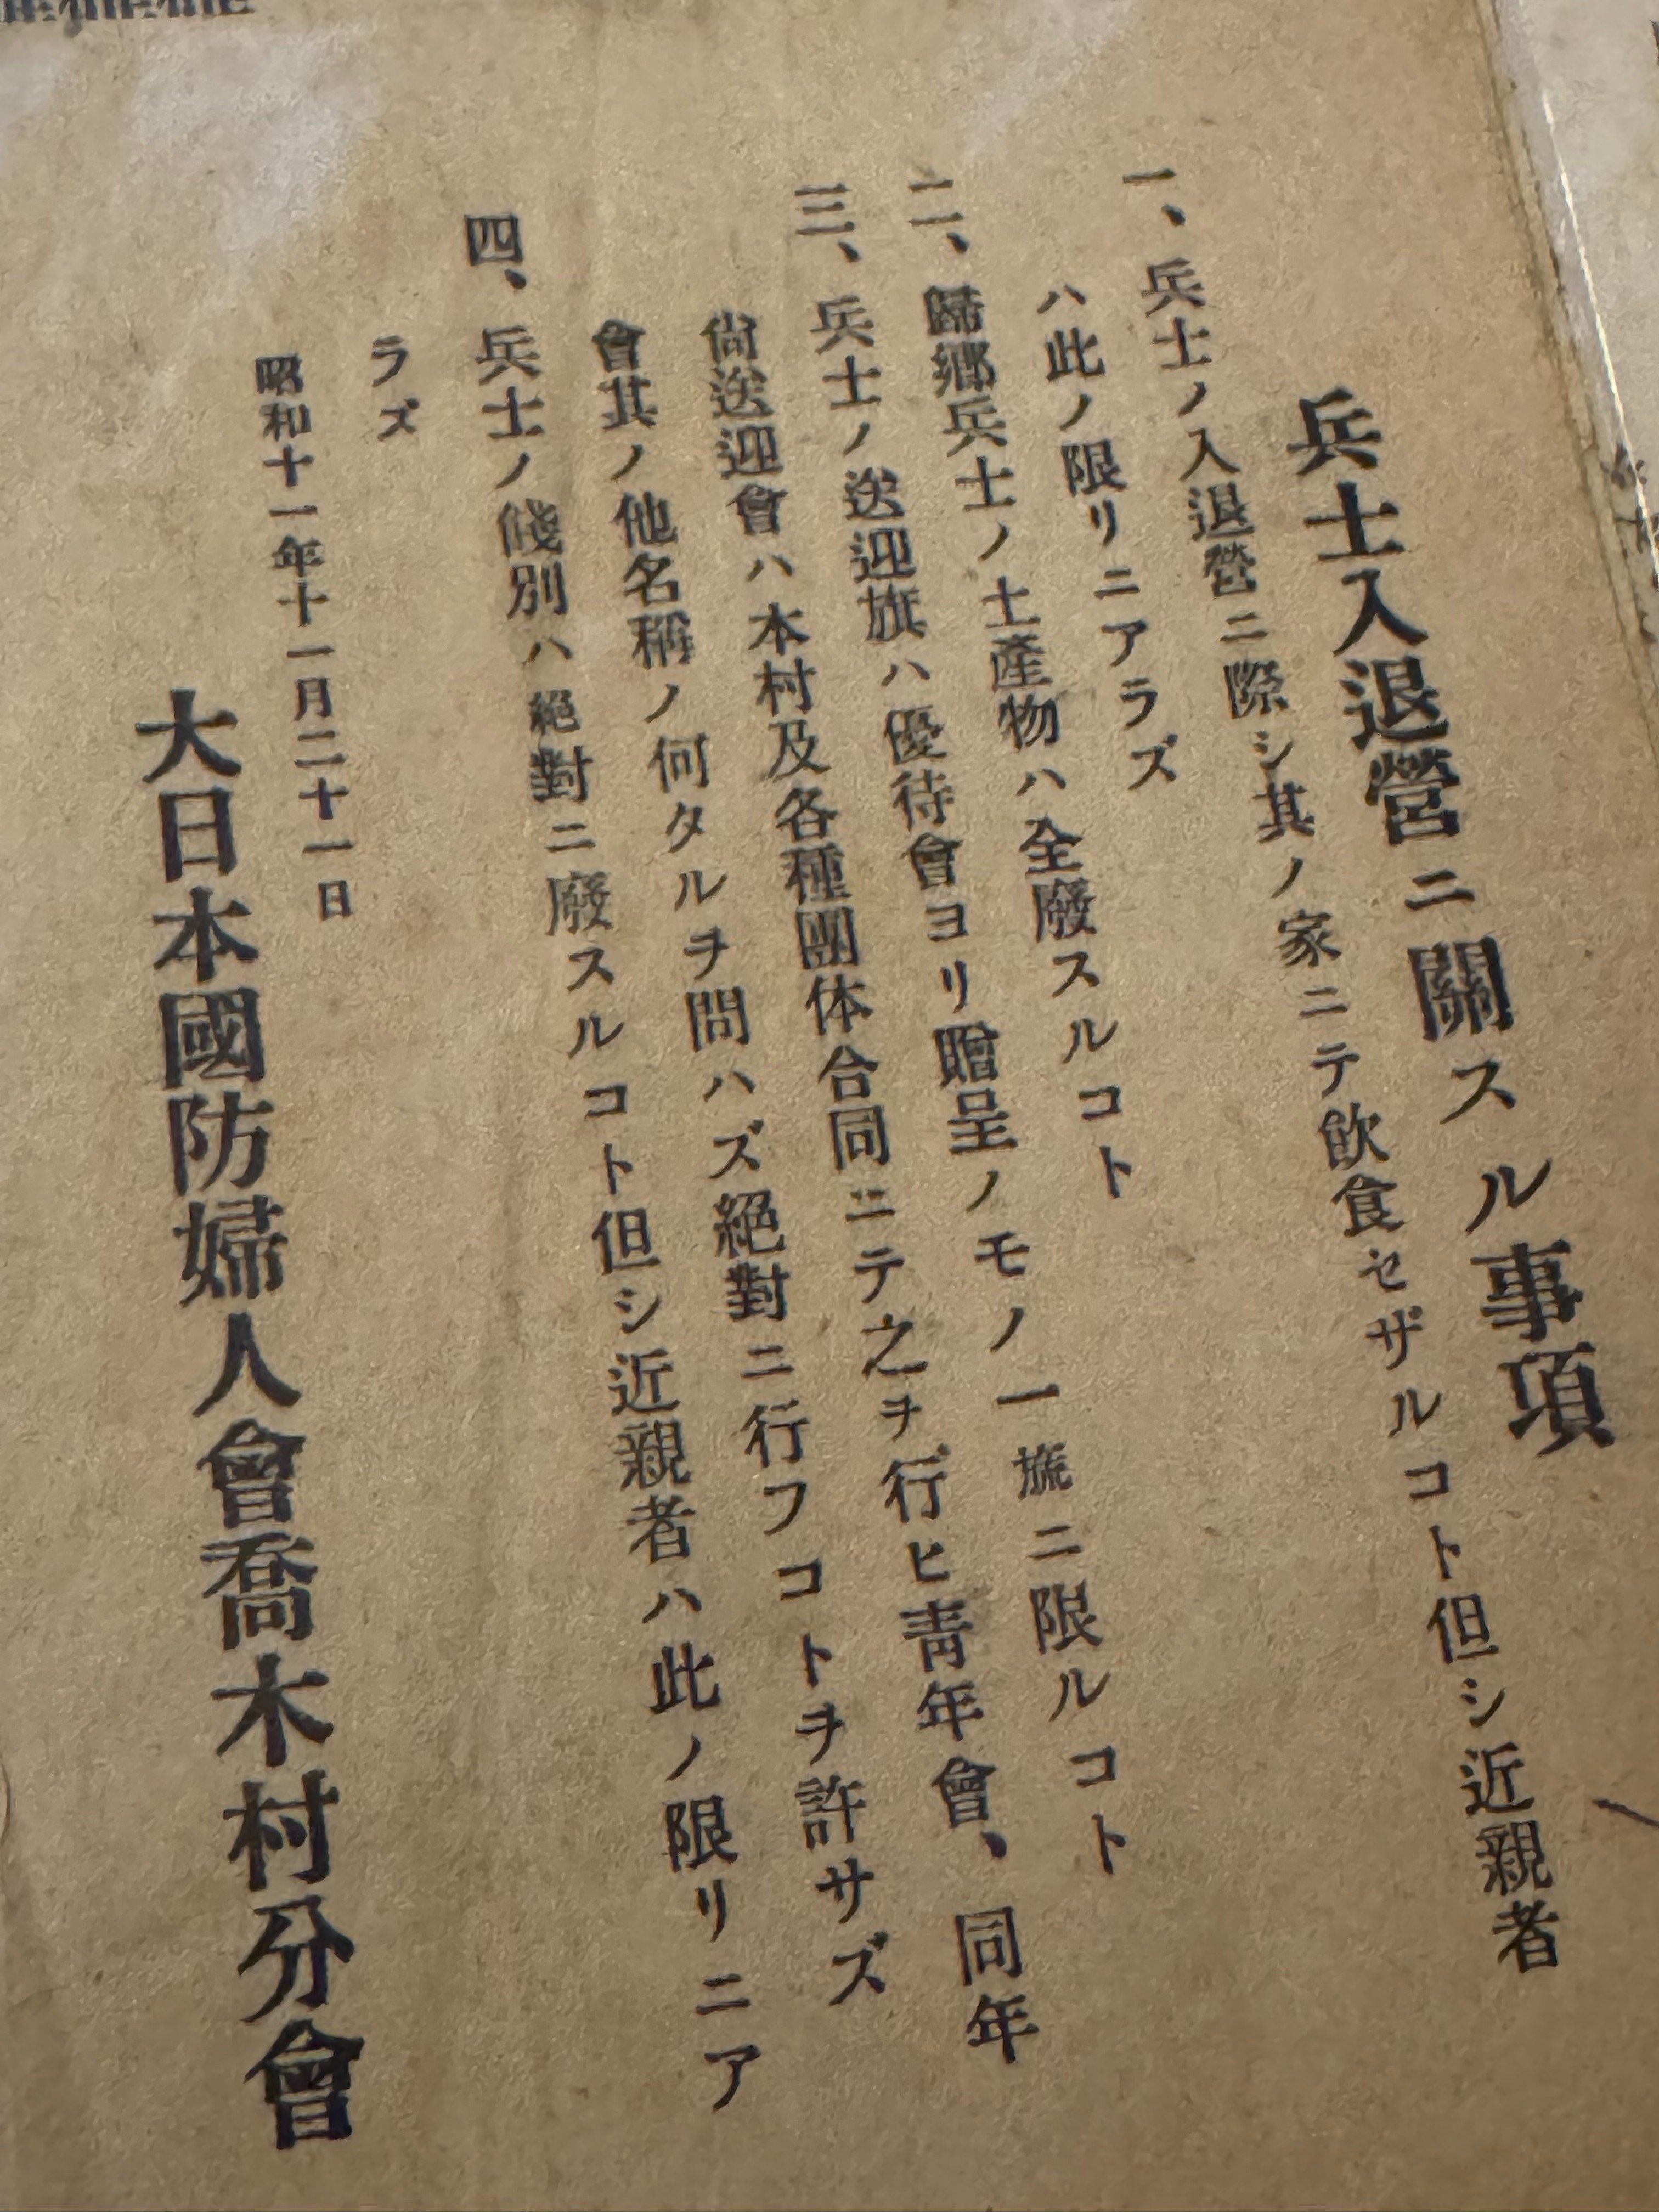 兵士入退營ニ關スル事項
一、兵士ノ入退營ニ際シ其ノ家ニテ飮食セザルコト但シ近親者
ハ此ノ限リニアラズ
二、歸鄕兵士ノ土產物ハ全廢スルコト
三、兵士ノ送迎旗ハ優待會ヨリ贈呈ノモノ一旒ニ限ルコト
尙送迎會ハ本村及各種團体合同ニテ之ヲ行ヒ靑年會、同年
會其ノ他名稱ノ何タルヲ問ハズ絕對ニ行フコトヲ許サズ
四、兵士ノ餞別ハ絕對ニ廢スルコト但シ近親者ハ此ノ限リニア
ラズ
昭和十一年十一月二十一日
大日本國防婦人會喬木村分會